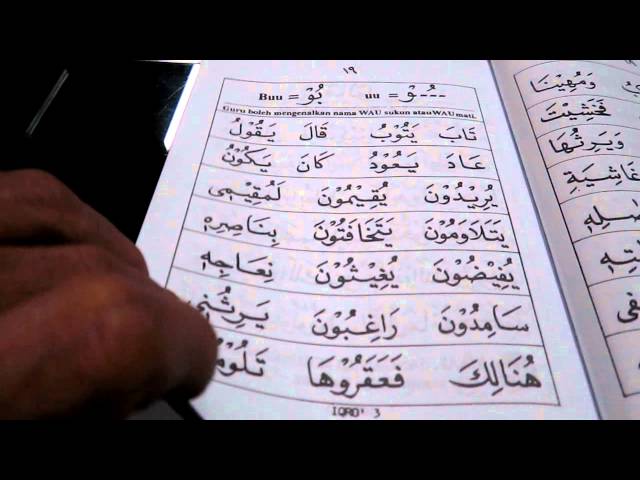 ١٩
ـُـوْ = uu بُوْ = Buu
Guru boleh mengenalkan nama WAU sukun atau WAU mati.
تَابَ يَتُوْبُ قَالَ يَقُوْلُ
عَادَ يَعُوْدُ كَانَ يَكُوْنُ
يُرِيْدُوْنَ يُقِيْمُوْنَ لَمُقِيْمٍ
يَتَلَاوَمُوْنَ يَتَخَافَتُوْنَ بِنَاصِرِهٖ
يُفِيْضُوْنَ يُغِيْثُوْنَ نِعَاجِهٖ
سَامِدُوْنَ رَاغِبُوْنَ يَرِثُنِيْ
هُنَالِكَ فَعَقَرُوْهَا
IQRO' 3
وَمُهِيْنًا
فَخَشِيْتُ
وَيَرِثُهَا
غَاشِيَةٍ